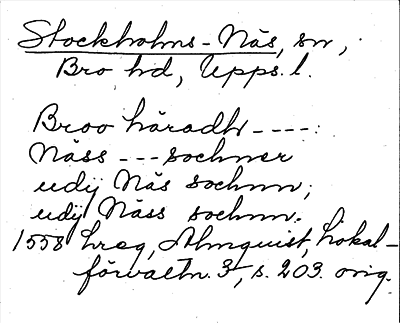 Stockholms-Näs, sn,
Bro hd, Upps. l.
Broo häradh ----:
Näss --- sochner
udij Näs sochnn;
udij Näss sochnn.
1558 hreg, Almquist, Lokal-
förvaltn. 3, s. 203. orig.